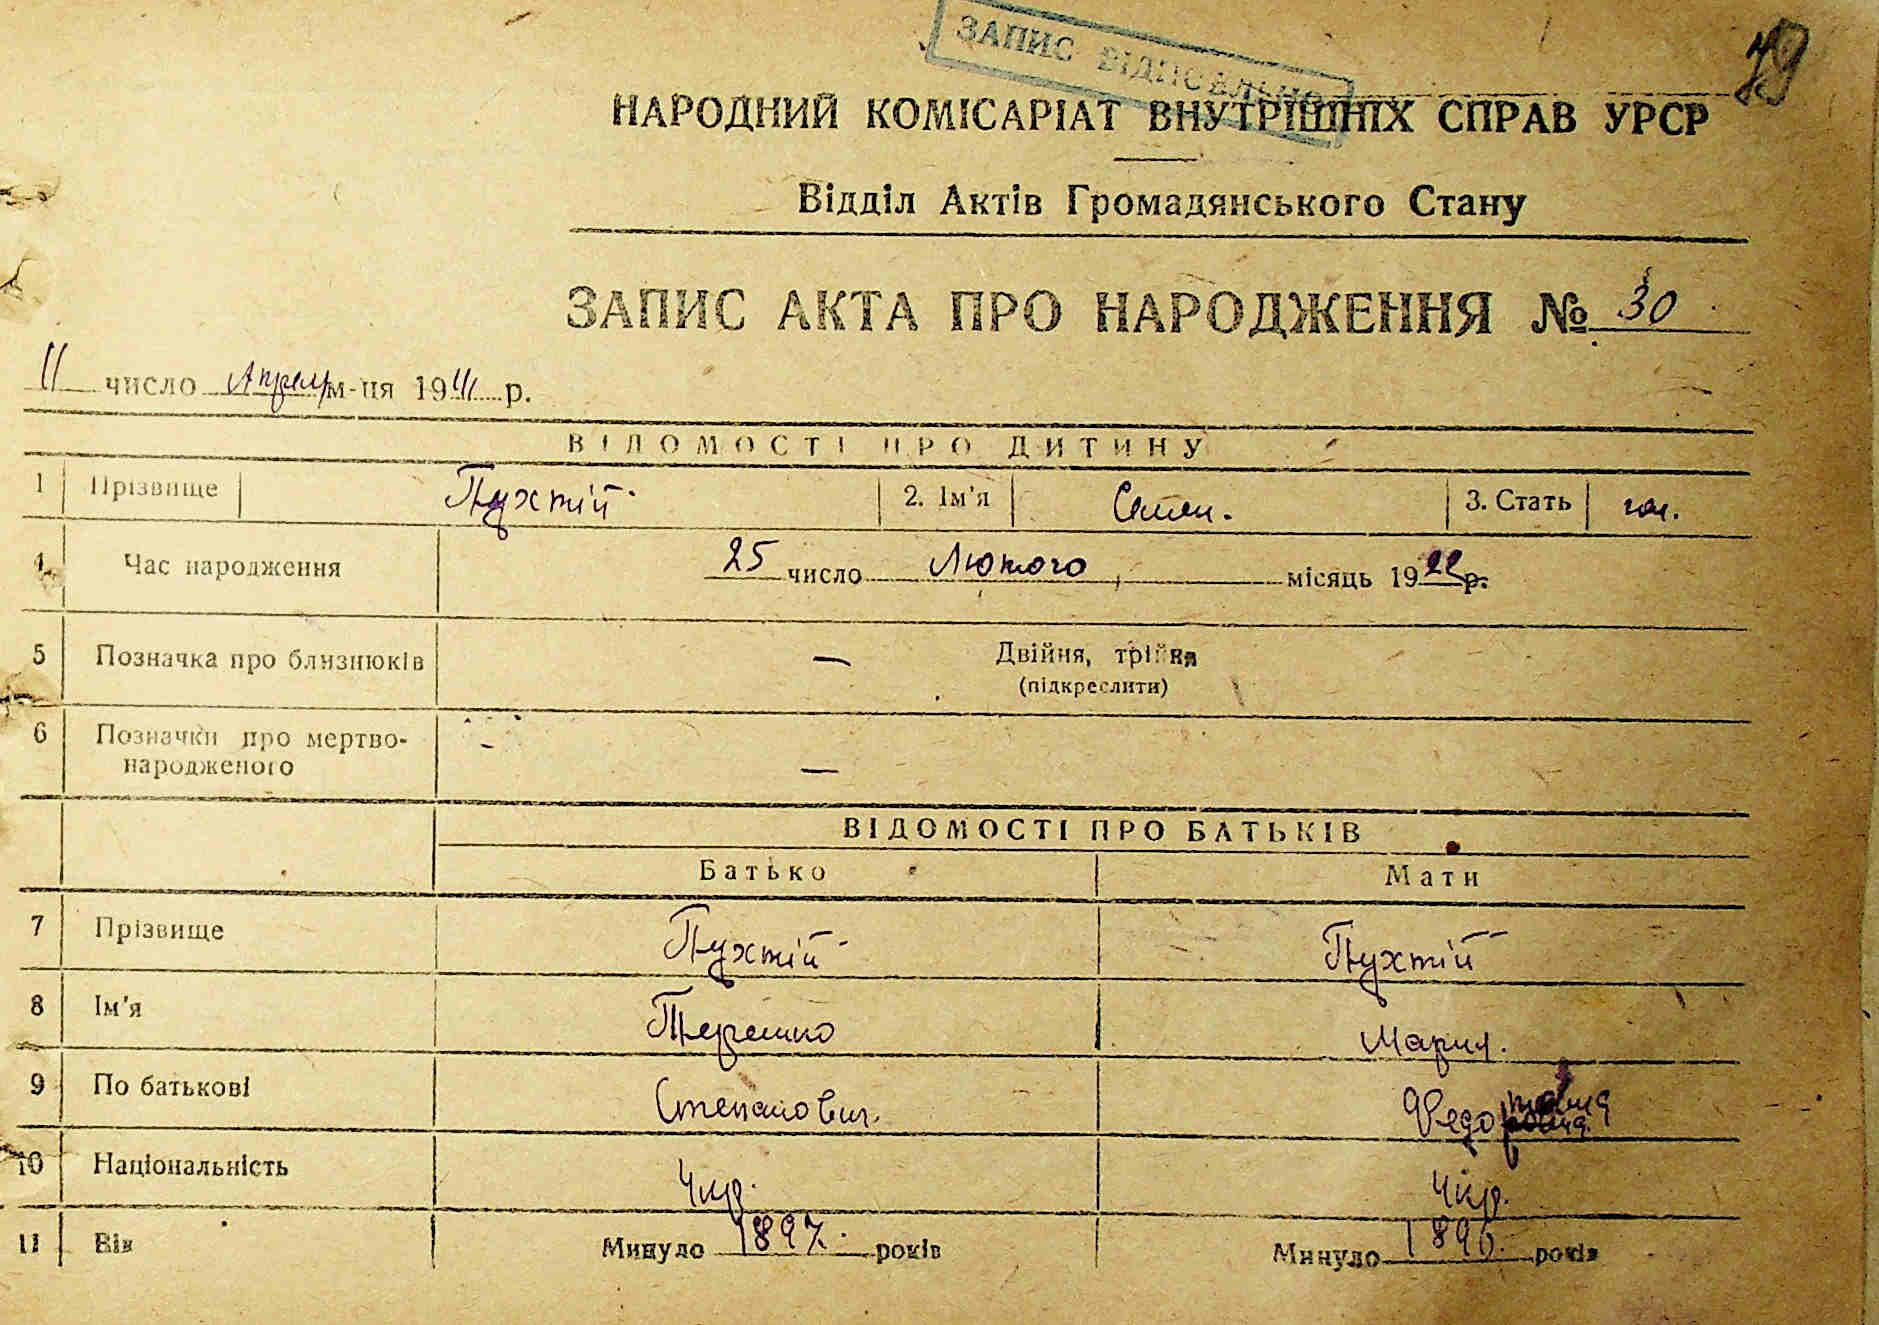 ЗАПИС ВІДНОВЛЕНО
79
НАРОДНИЙ КОМІСАРІАТ ВНУТРІШНІХ СПРАВ УРСР
Відділ Актів Громадянського Стану
ЗАПИС АКТА ПРО НАРОДЖЕННЯ № 30
11 число Апреля м-ця 1941 р.
ВІДОМОСТІ ПРО ДИТИНУ
1 Прізвище Пухтій 2. Ім'я Семен. 3. Стать чол.
4 Час народження 25 число Лютого місяць 1922 р.
5 Позначка про близнюків — Двійня, трійня
(підкреслити)
6 Позначки про мертво-
народженого —
ВІДОМОСТІ ПРО БАТЬКІВ
Батько Мати
7 Прізвище Пухтій Пухтій
8 Ім'я Терешко Мария.
9 По батькові Степанович. Федоровна
10 Національність Укр. Укр.
11 Вік Минуло 1897. років Минуло 1896. років